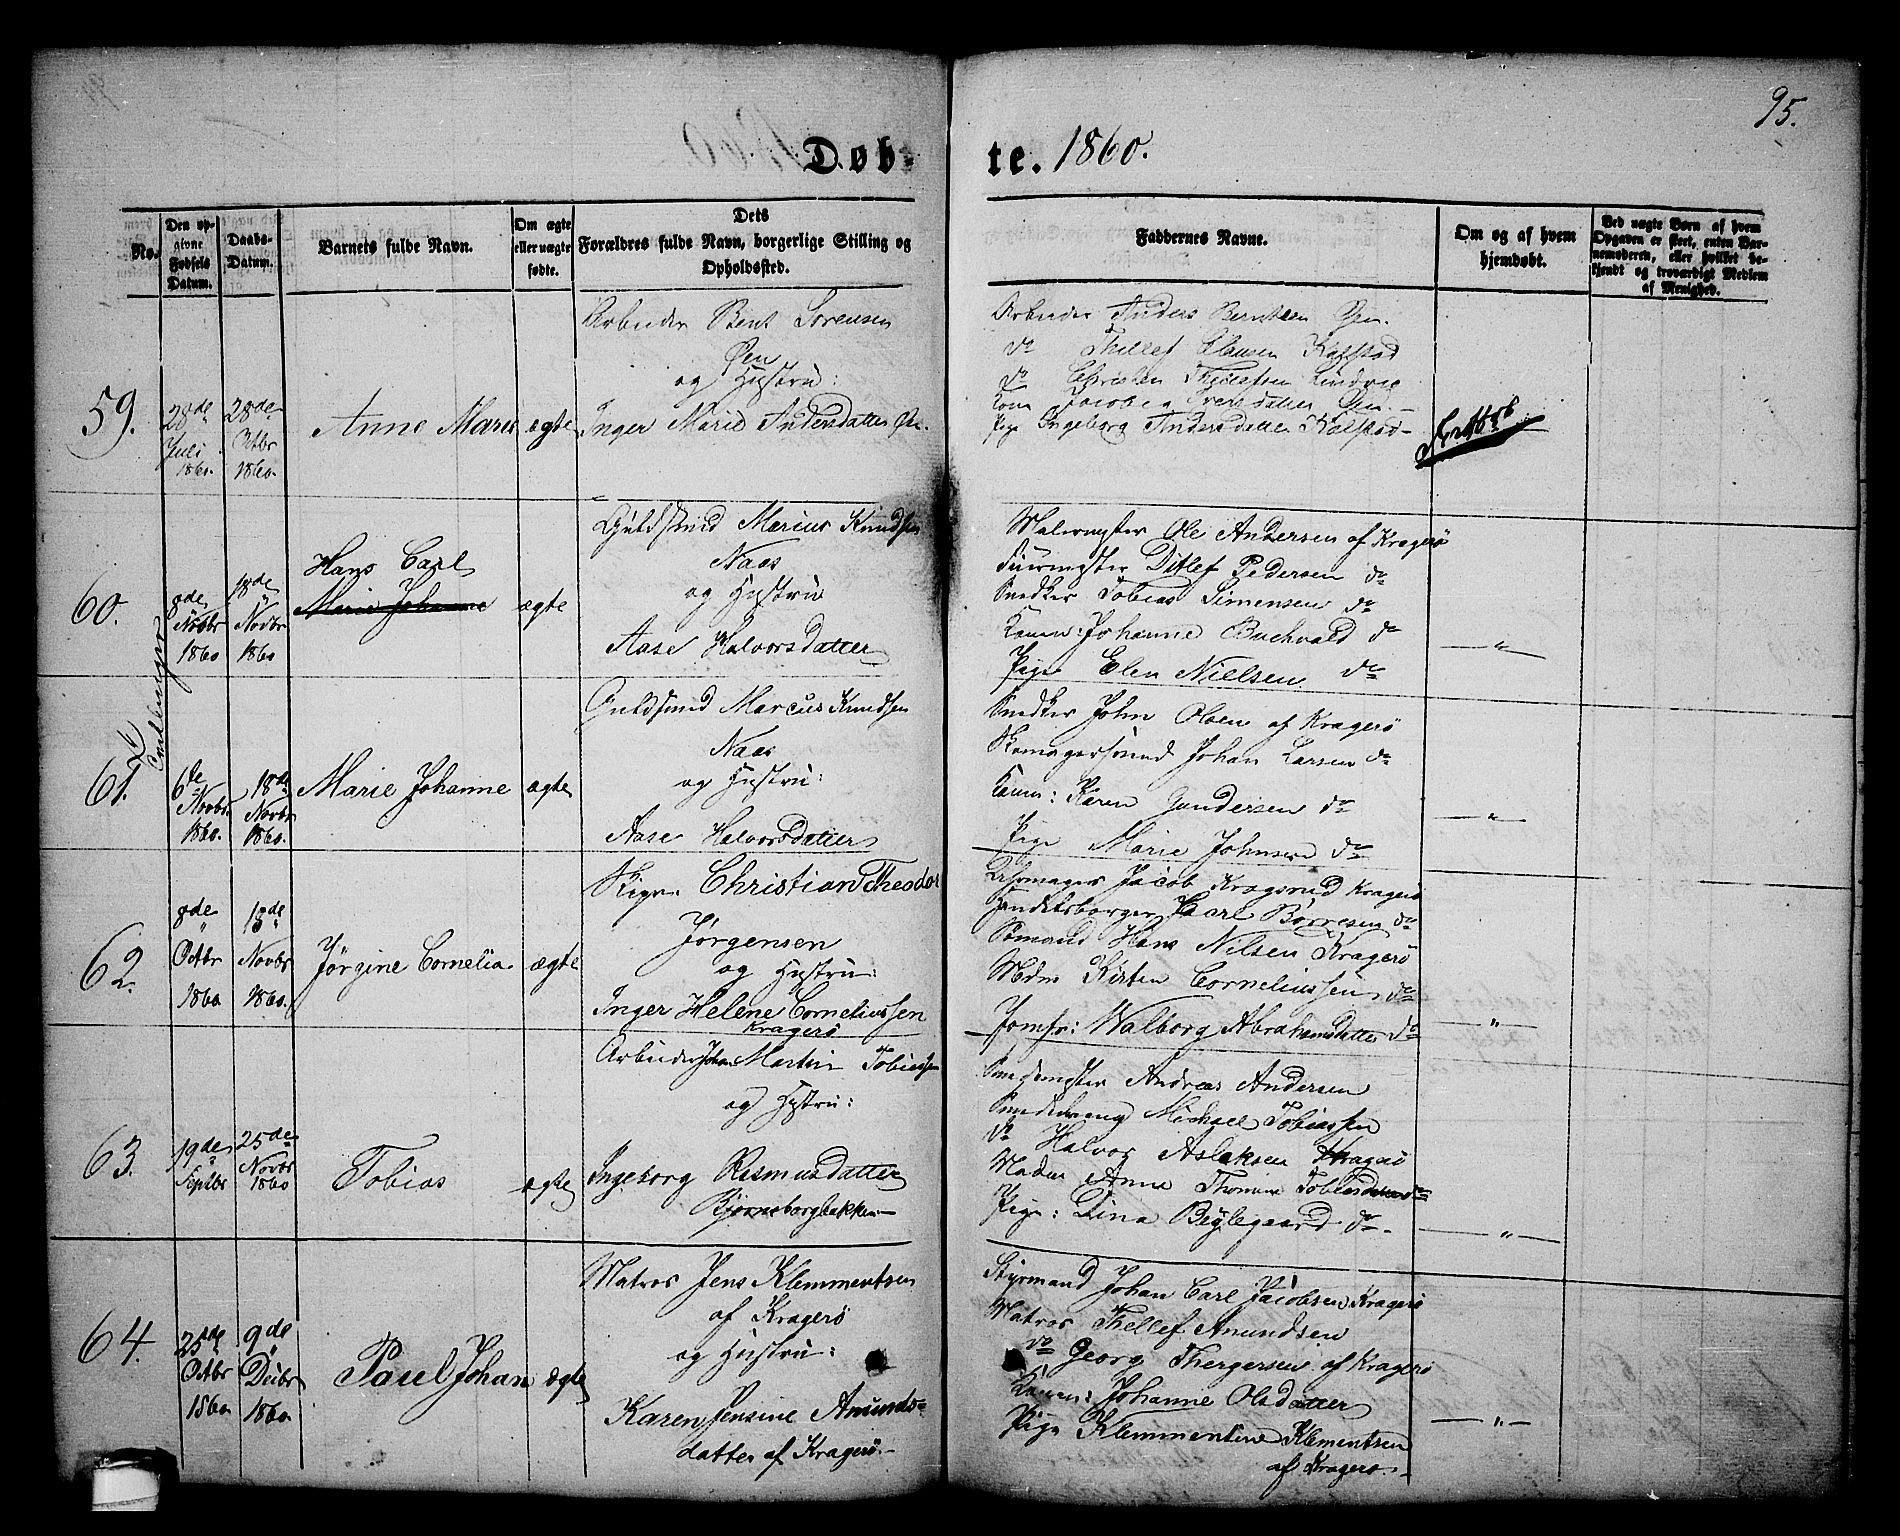 95.
Døb-
te. 1860.
No.
Den op-
givne
Fødsels
Datum.
Daabs-
Datum.
Barnets fulde Navn.
Om ægte
eller uægte
fødte.
Dets
Forældres fulde Navn, borgerlige Stilling og
Opholdssted.
Faddernes Navne.
Om og af hvem
hjemdøbt.
Ved uægte Børn af hvem
Opgaven er skeet, enten Bar-
nemoderen, eller hvilket be-
kjendt og troværdigt Medlem
af Menighed.
59.
28de
Juli
1860.
28de
Octbr
1860.
Anne Marie
ægte
Arbeider Bent Sorensen
Øen
og Hustru:
Inger Marie Andersdatter Øen.
Arbeider Anders Berntsen Øen.
do Thellef Clausen Kalstad
do Christen
Kone Jacobea Øen.
Pige Ingeborg Andersdatter Kalstad
60.
8de
Novbr
1860
18de
Novbr
1860
Hans Carl
Marie Johanne
ægte
Guldsmed Marius Knudsen
Naas
og Hustru
Aase Halvorsdatter
Malermester Ole Andersen af Kragerö
Ditlef Pedersen do
Snedker Tobias Simensen do
Konen: Johanne Buchvald do
Pige Elen Nielsen do
— " —
Tvillinger
61.
6de
Novbr.
1860.
18de
Novbr
1860.
Marie Johanne
ægte
Guldsmed Marcus Knudsen
Naas
og Hustru:
Aase Halvorsdatter
Snedker John Olsen af Kragerö
Skomagersvend Johan Larsen do
Konen: Karen Gundersen do
Pige Marie Johnsen do
— " —
62.
8de
Octbr
1860
18de
Novbr
1860.
Jørgine Cornelia
ægte
Christian Theodor
Jørgensen
og Hustru:
Inger Helene Corneliussen
Kragerö
Jacob Kragerö
Handelsborger Carl Børresen do
Sömand Hans Nilsen Kragerö
Mdm Kirsten Corneliussen do
Jomfr: Walborg Abrahamsdatter do
— " —
63.
19de
Septbr
25de
Novbr
1860
Tobias
ægte
Arbeider Johan Martin Tobiassen
og Hustru:
Ingeborg Rasmusdatter
Bjørnsborgbakken
Smedemester Andreas Andersen
Smededreng Michael Tobiassen
do Halvor Aslaksen Kragerö
Madm Anne Thomine Tobiasdatter do
Pige: Lina Bøylegaard do
— " —
64.
25de
Octbr
1860
9de
Decbr
1860
Paul Johan
ægte
Matros Jens Klemmentsen
af Kragerö
og Hustru:
Karen Jensine Amunds-
datter af Kragerö.
Styrmand Johan Carl Jacobsen Kragerö
Matros Thellef Amundsen
do Georg Thergersen af Kragerö
Konen: Johanne Olsdatter
Pige Klemmentine Klementsen
af Kragerö
— " —